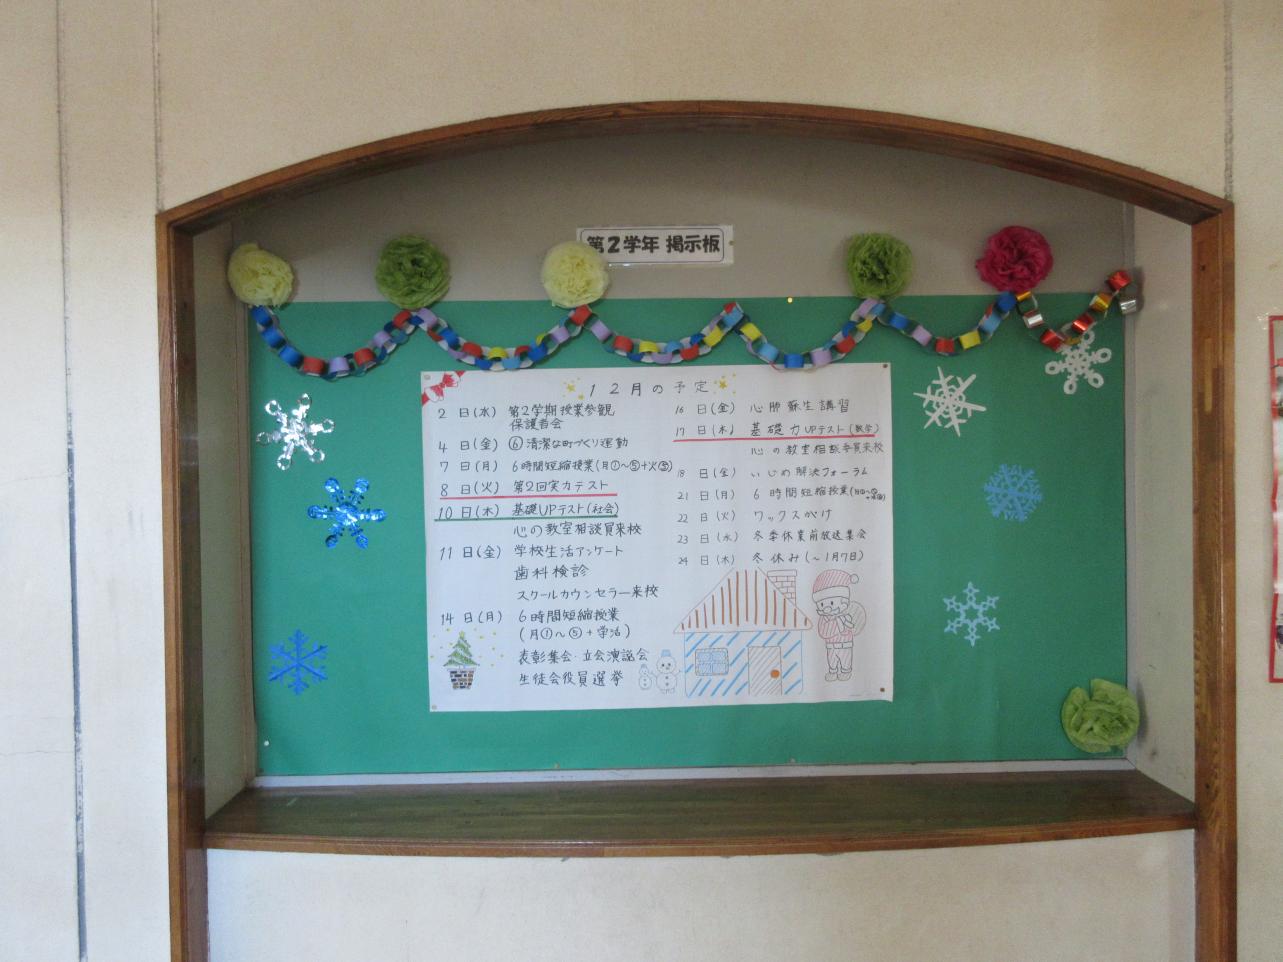 第2学年 掲示板
12月の予定
2 日(水) 第2学期授業参観
保護者会
4 日(金) ⑥清潔な町づくり運動
7 日(月) 6時間短縮授業(月①~⑤+火⑤)
8 日(火) 第2回実力テスト
10 日(木) 基礎UPテスト(社会)
心の教室相談員来校
11 日(金) 学校生活アンケート
歯科検診
スクールカウンセラー来校
14 日(月) 6時間短縮授業
(月①~⑤+学活)
表彰集会・立会演説会
生徒会役員選挙
16 日(金) 心肺蘇生講習
17 日(木) 基礎力UPテスト(数学)
心の教室相談員来校
18 日(金) いじめ解決フォーラム
21 日(月) 6時間短縮授業
22 日(火) ワックスがけ
23 日(水) 冬季休業前放送集会
24 日(木) 冬休み(~1月7日)